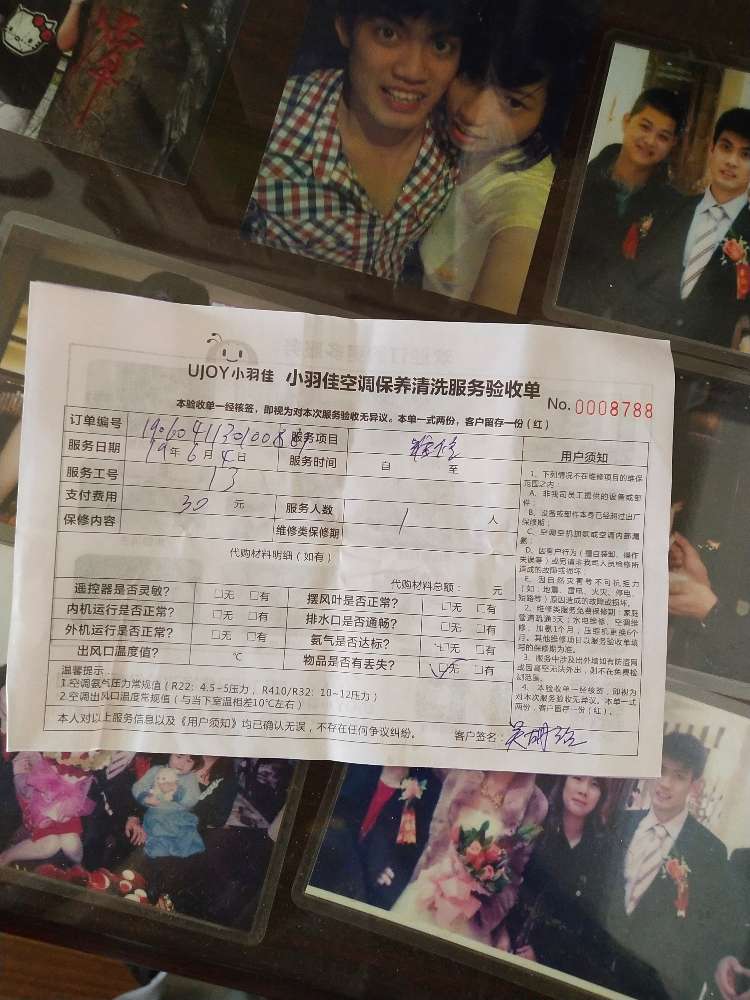 UJOY小羽佳 小羽佳空调保养清洗服务验收单 No. 0008788
本验收单一经核签，即视为对本次服务验收无异议。本单一式两份，客户留存一份（红）
订单编号 服务项目
服务日期 19年6月4日 服务时间 自 至
服务工号 13
支付费用 30 元 服务人数 1 人
保修内容 维修类保修期
代购材料明细（如有）
代购材料总额： 元
遥控器是否灵敏？ □无 □有 摆风叶是否正常？ □无 □有
内机运行是否正常？ □无 □有 排水口是否通畅？ □无 □有
外机运行是否正常？ □无 □有 氨气是否达标？ □无 □有
出风口温度值？ ℃ 物品是否有丢失？ ☑无 □有
温馨提示：
1.空调氨气压力常规值（R22：4.5~5压力，R410/R32：10~12压力）
2.空调出风口温度常规值（与当下室温相差10℃左右）
本人对以上服务信息以及《用户须知》均已确认无误，不存在任何争议纠纷。 客户签名：
用户须知
1、下列情况不在维修项目的维保
范围之内：
A、非我司员工提供的设备或部
件；
B、设备或部件本身已经超过出厂
保修期；
C、空调空机加氨或空调内部漏
氨；
D、因客户行为（擅自装卸、操作
失误等）或另请非我司人员检修所
造成的故障或损坏；
E、因自然灾害等不可抗拒力
（如：地震、雷电、火灾、停电、
短路等）原因造成的故障或损坏。
2、维修类服务免费保修期：家庭
管道疏通3天；水电维修、空调维
修、加氨1个月；压缩机更换6个
月。其他维修项目以服务验收单填
写的保修期为准。
3、服务中涉及出外墙如有防盗网
或因高空无法外出，则不在免费检
测范围。
4、本验收单一经核签，即视为
对本次服务验收无异议。本单一式
两份，客户留存一份（红）。